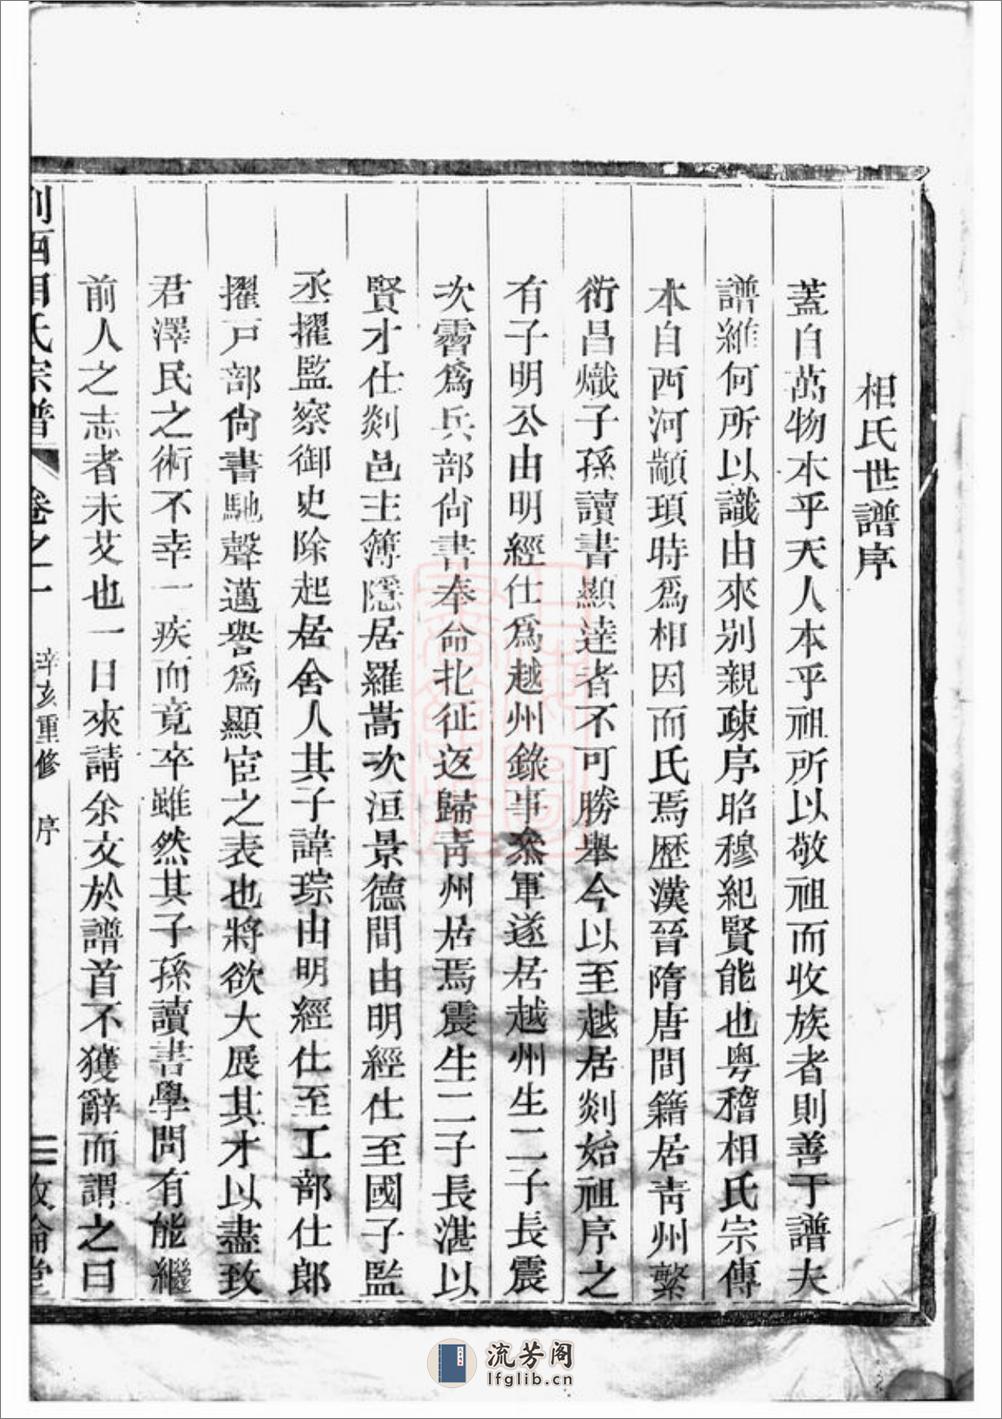 相氏世譜序
蓋自萬物本乎天人本乎祖所以敬祖而收族者則善于譜夫
譜維何所以識由來别親疎序昭穆紀賢能也粤稽相氏宗傳
本自西河顓頊時爲相因而氏焉歷漢晉隋唐間籍居靑州蘩
衍昌熾子孫讀書顯達者不可勝舉今以至越居剡始祖序之
有子明公由明經仕爲越州錄事叅軍遂居越州生二子長震
次霫爲兵部尙書奉命北征返歸靑州居焉震生二子長湛以
賢才仕剡邑主簿隱居羅嵩次洹景德間由明經仕至國子監
丞擢監察御史除起居舍人其子諱琮由明經仕至工部仕郎
擢戸部尙書馳聲邁譽爲顯宦之表也將欲大展其才以盡致
君澤民之術不幸一疾而竟卒雖然其子孫讀書學問有能繼
前人之志者未艾也一日來請余文於譜首不獲辭而謂之曰
西相氏宗譜 卷之一 辛亥重修 序 二 敦倫堂
流芳阁
lfglib.cn